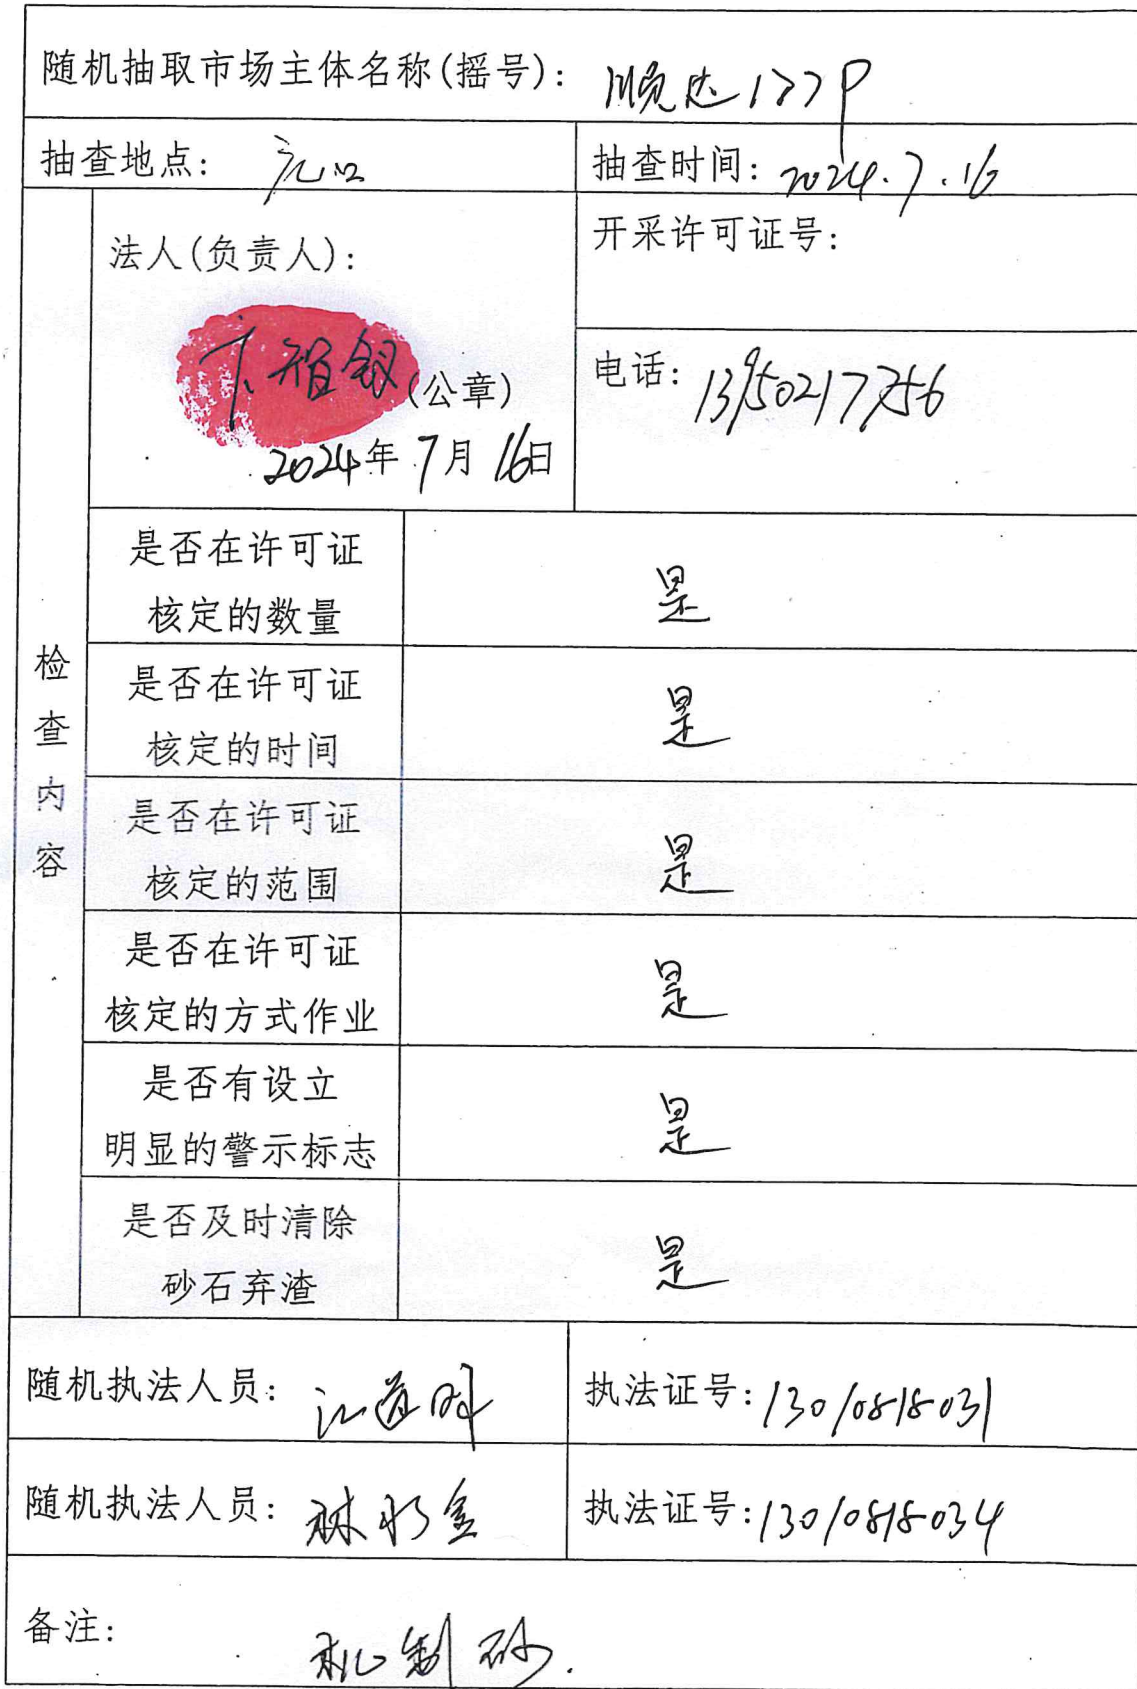 随机抽取市场主体名称(摇号): 顺达177P
抽查地点: 亢口
抽查时间: 2024.7.16
法人(负责人):
开采许可证号:
卞祖钗(公章)
2024年7月16日
电话: 13950217756
检查内容
是否在许可证
核定的数量
是
是否在许可证
核定的时间
是
是否在许可证
核定的范围
是
是否在许可证
核定的方式作业
是
是否有设立
明显的警示标志
是
是否及时清除
砂石弃渣
是
随机执法人员: 江道明
执法证号: 13010818031
随机执法人员: 林永金
执法证号: 13010818034
备注: 机制砂.